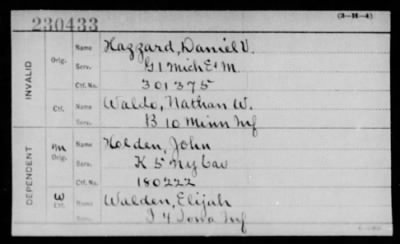 230433
(3-H-4)
INVALID
Orig.
Name Hazzard, Daniel V.
Serv. G 1 Mich E & M.
Ctf. No. 301375
Ctf.
Name Waldo, Nathan W.
Serv. B 10 Minn Inf
DEPENDENT
M
Orig.
Name Holden, John
Serv. K 5 Ny Cav
Ctf. No. 180222
W
Ctf.
Name Walden, Elijah
Serv. I 4 Iowa Inf